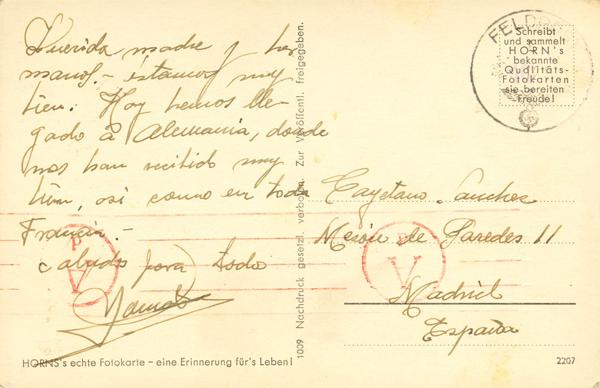 Querida madre y her
manos.- istamos muy
bien. Hoy hemos lle
gado à Alemania, donde
nos han recibido muy
bien, asi como en toda
Francia.-
saludos para todo
HORNS's echte Fotokarte – eine Erinnerung für's Leben!
1009 Nachdruck gesetzl. verboten. Zur Veröffentl. freigegeben.
FELDP
Schreibt
und sammelt
HORN's
bekannte
Qualitäts-
Fotokarten
sie bereiten
Freude!
Cayetano Sanchez
Mesón de Paredes 11
Madrid
España
P
V
P
V
2207